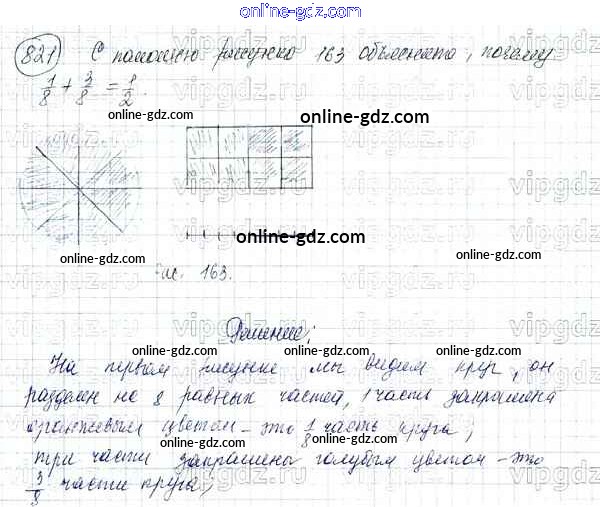 online-gdz.com
821) С помощью рисунка 163 объясните, почему
1/8 + 3/8 = 1/2.
online-gdz.com
online-gdz.com
online-gdz.com
Рис. 163.
online-gdz.com
Решение:
online-gdz.com online-gdz.com
На первом рисунке мы видим круг, он
разделен на 8 равных частей, 1 часть закрашена
online-gdz.com online-gdz.com
оранжевым цветом - это 1/8 часть круга,
online-gdz.com online-gdz.com
три части закрашены голубым цветом - это
3/8 части круга;
online-gdz.com
vipgdz.com
vipgdz.com
vipgdz.com
vipgdz.com
vipgdz.com
vipgdz.com